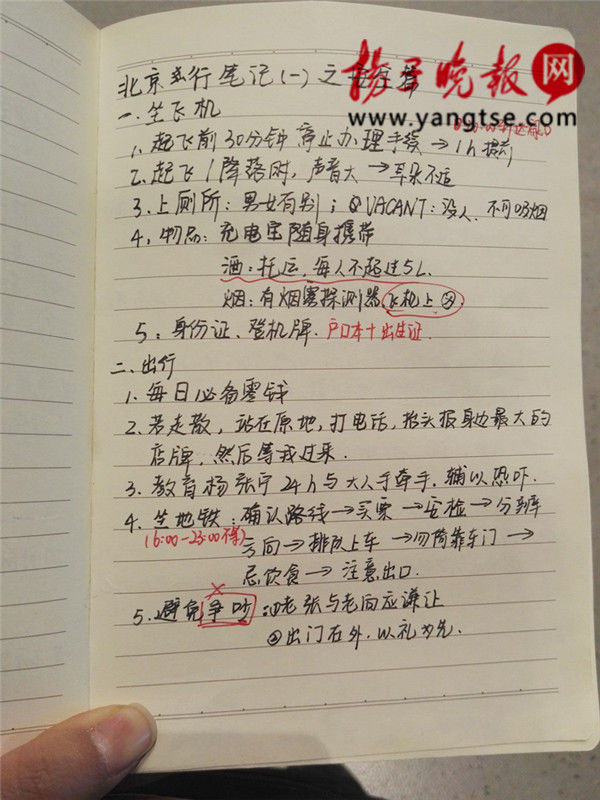 扬子晚报网
www.yangtse.com
北京旅行笔记(一)之
一.坐飞机
1.起飞前30分钟停止办理手续→1h提前
2.起飞/降落时,声音大→耳朵不适
3.上厕所:男女有别;②VACANT:没人.不可吸烟
4.物品:充电宝随身携带
酒:托运,每人不超过5L.
烟:有烟雾探测器,飞机上
5:身份证、登机牌.户口本+出生证.
二、出行
1.每日必备零钱
2.若走散,站在原地,打电话,抬头报身边最大的
店牌,然后等我过来.
3.教育杨张宁24h与大人手牵手,辅以恐吓.
4.坐地铁:确认路线→买票→安检→分辨
(6:00-23:00不等)
方向→排队上车→勿倚靠车门→
忌饮食→注意出口.
5.避免争吵:①老张与老向应谦让
②出门在外.以礼为先.